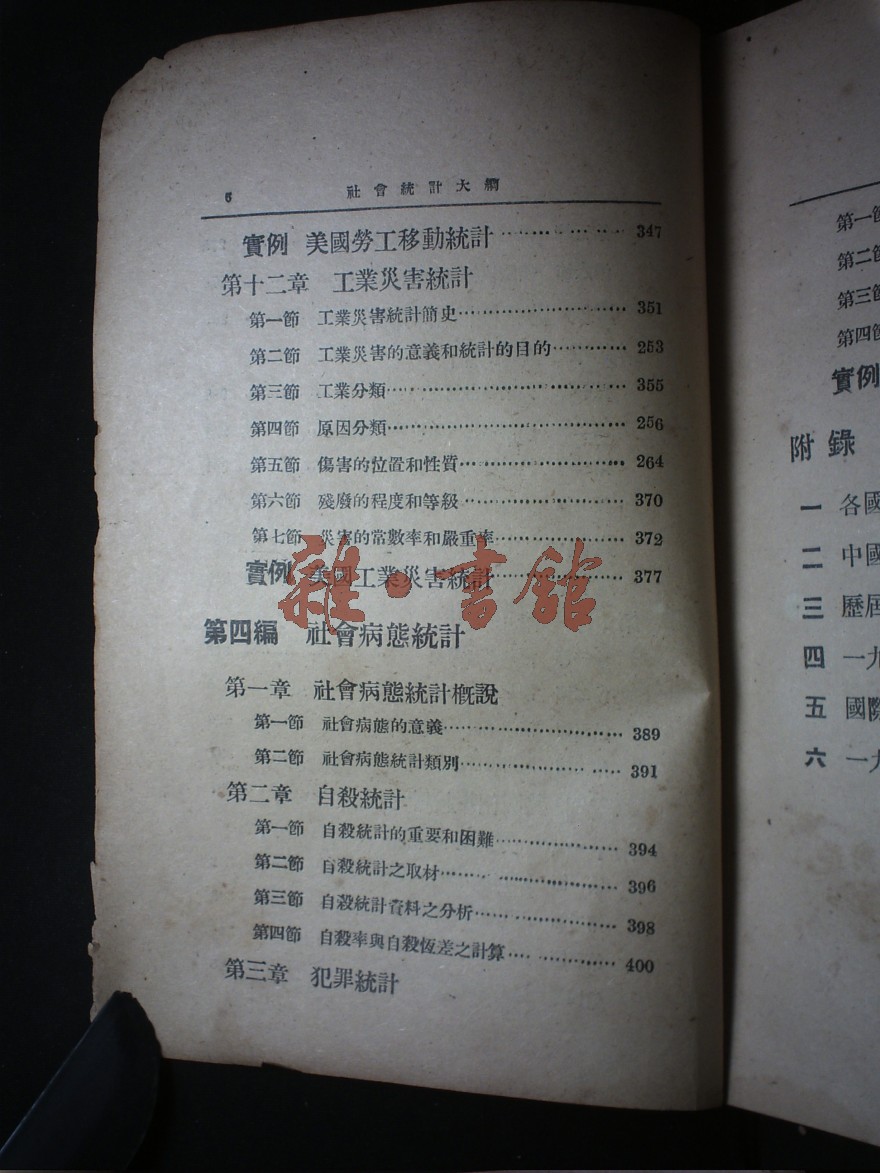 6 社會統計大綱
實例 美國勞工移動統計 347
第十二章 工業災害統計
第一節 工業災害統計簡史 351
第二節 工業災害的意義和統計的目的 253
第三節 工業分類 355
第四節 原因分類 256
第五節 傷害的位置和性質 264
第六節 殘廢的程度和等級 370
第七節 災害的常數率和嚴重率 372
實例 美國工業災害統計 377
雜·書館
第四編 社會病態統計
第一章 社會病態統計概說
第一節 社會病態的意義 389
第二節 社會病態統計類別 391
第二章 自殺統計
第一節 自殺統計的重要和困難 394
第二節 自殺統計之取材 396
第三節 自殺統計資料之分析 398
第四節 自殺率與自殺恆差之計算 400
第三章 犯罪統計
第一節
第二節
第三節
第四節
實例
附錄
一 各國
二 中國
三 歷屆
四 一九
五 國際
六 一九